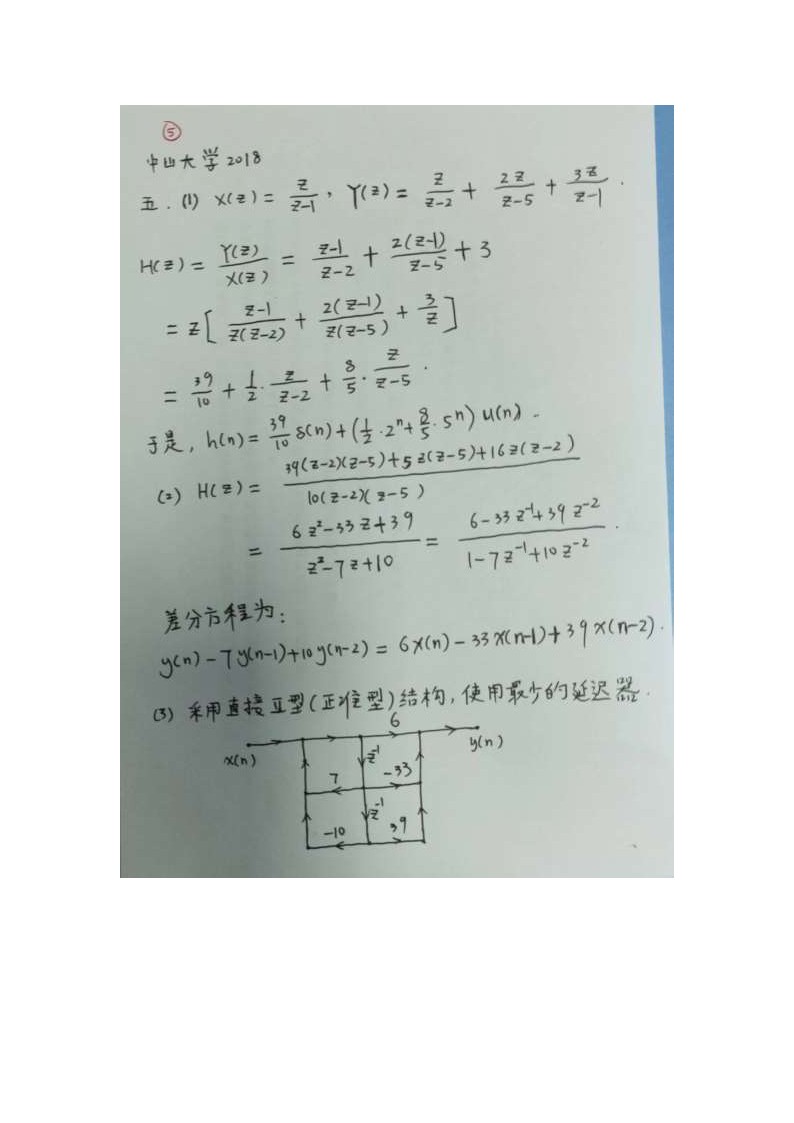 ⑤
中山大学2018
五.(1) X(z) = z/(z-1), Y(z) = z/(z-2) + 2z/(z-5) + 3z/(z-1).
H(z) = Y(z)/X(z) = (z-1)/(z-2) + 2(z-1)/(z-5) + 3
= z[ (z-1)/(z(z-2)) + 2(z-1)/(z(z-5)) + 3/z ]
= 39/10 + 1/2 · z/(z-2) + 8/5 · z/(z-5).
于是, h(n) = 39/10 δ(n) + (1/2 · 2ⁿ + 8/5 · 5ⁿ) u(n).
(2) H(z) = (39(z-2)(z-5)+5z(z-5)+16z(z-2))/(10(z-2)(z-5))
= (6z²-33z+39)/(z²-7z+10) = (6-33z⁻¹+39z⁻²)/(1-7z⁻¹+10z⁻²).
差分方程为:
y(n)-7y(n-1)+10y(n-2) = 6x(n)-33x(n-1)+39x(n-2).
(3) 采用直接Ⅱ型(正准型)结构, 使用最少的延迟器.
6
x(n) y(n)
z⁻¹
7 -33
z⁻¹
-10 39